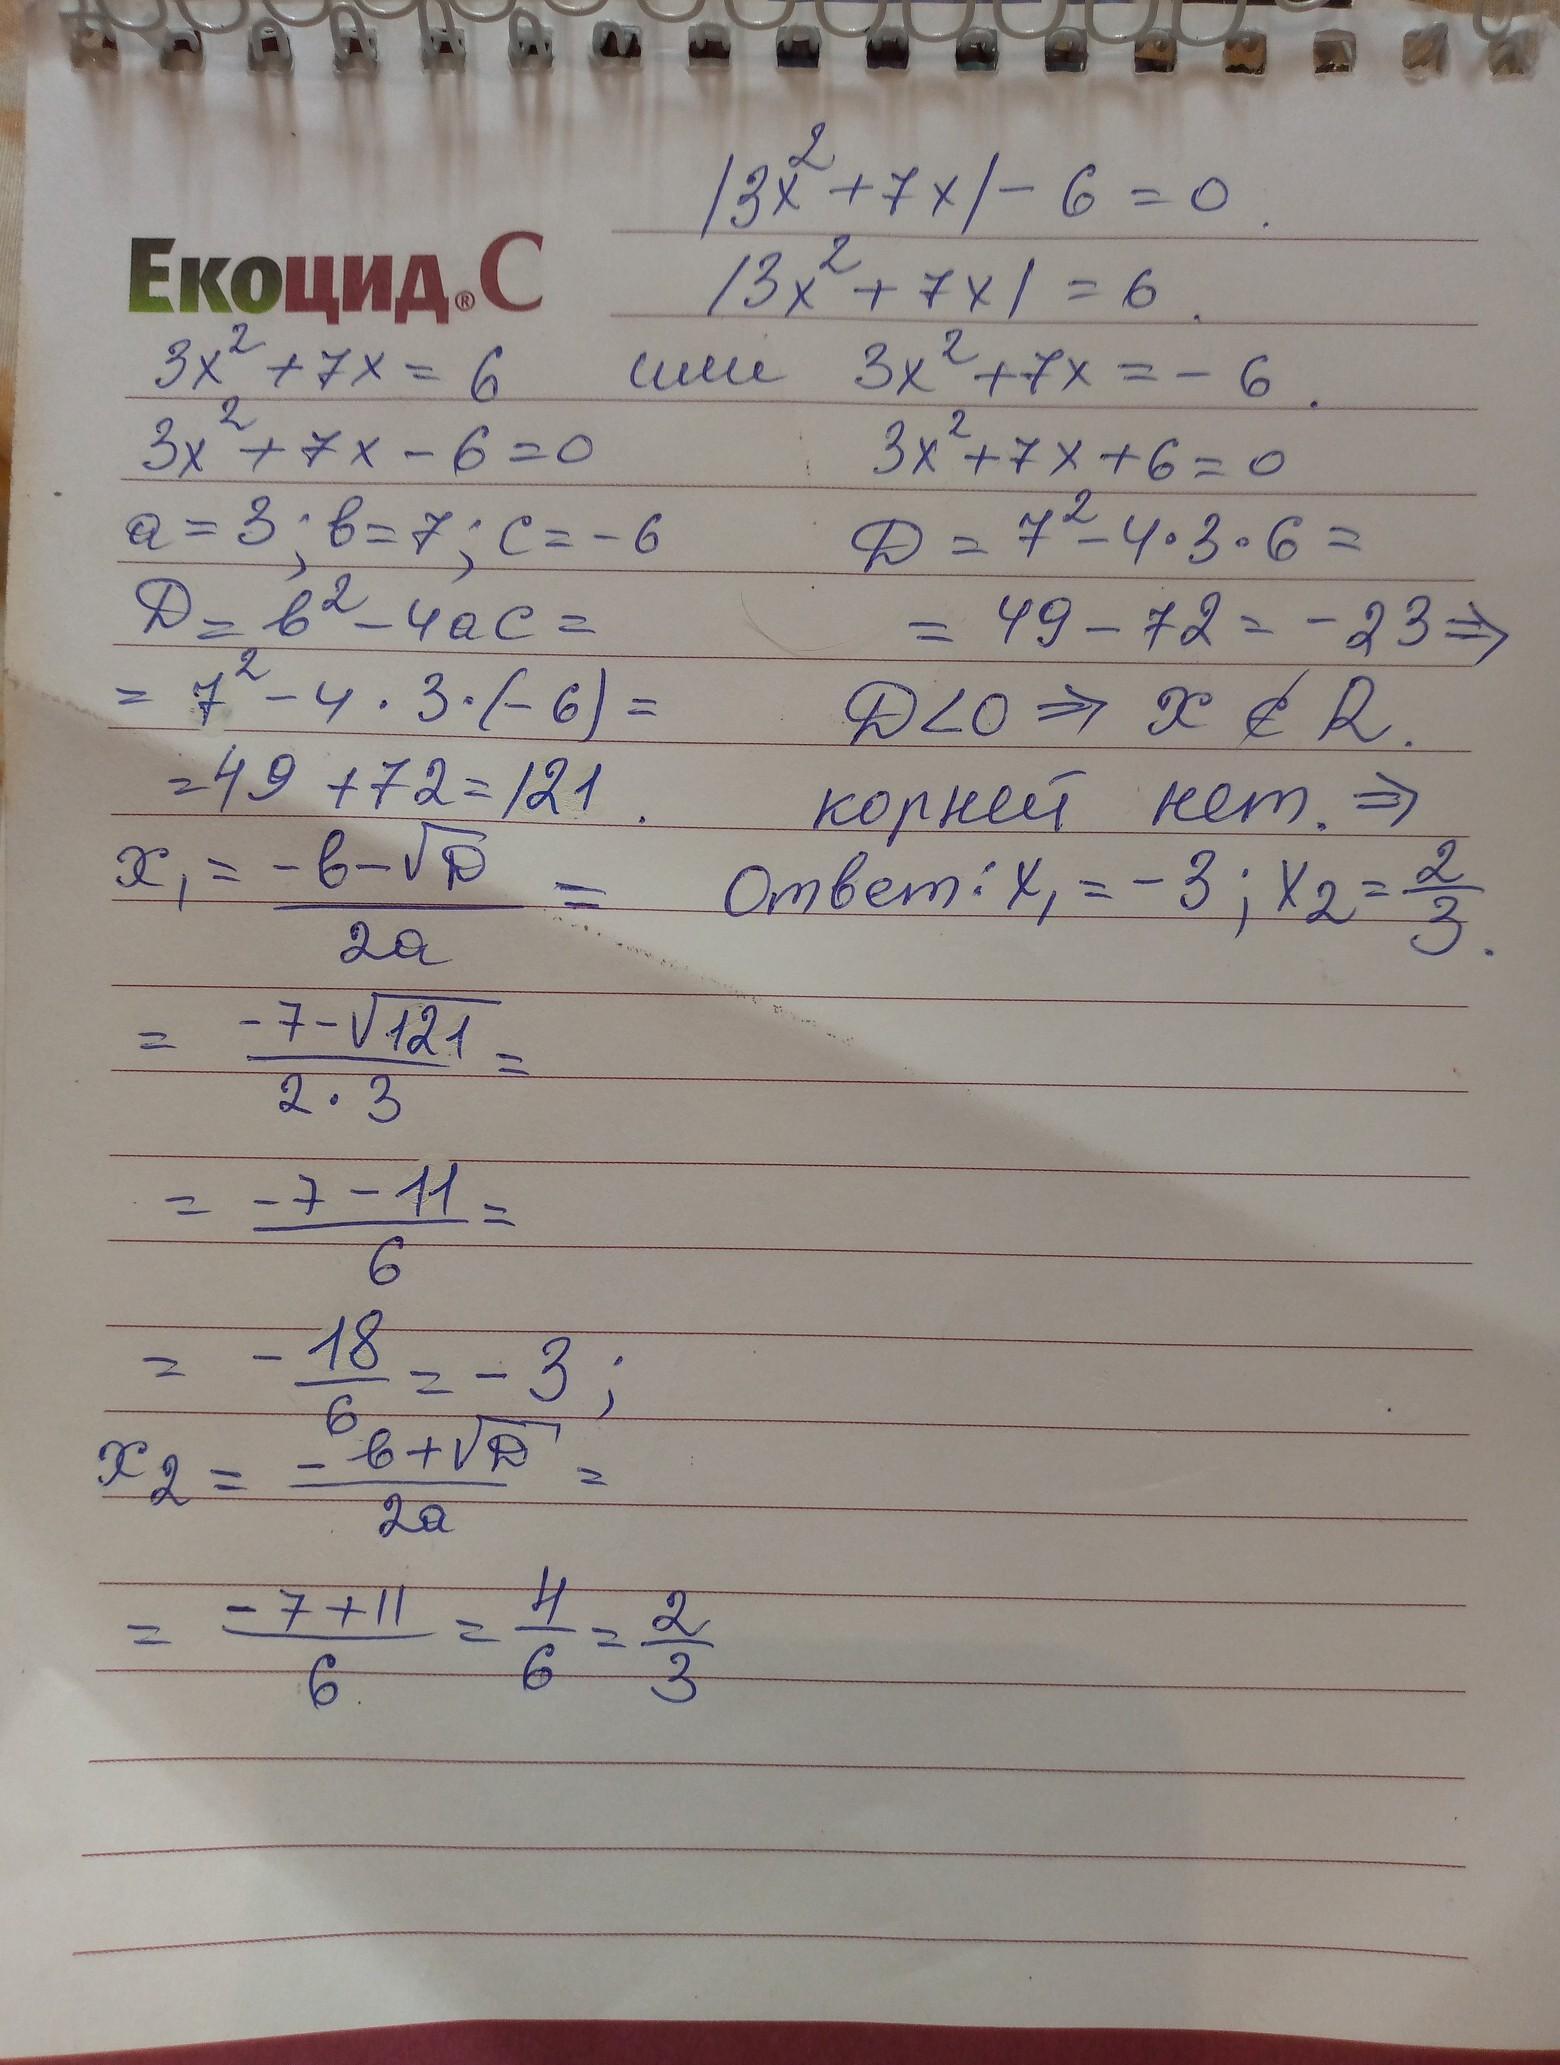 |3x² + 7x| - 6 = 0.
Екоцид® С
|3x² + 7x| = 6.
3x² + 7x = 6 или 3x² + 7x = - 6.
3x² + 7x - 6 = 0
3x² + 7x + 6 = 0
a = 3; b = 7; c = - 6
D = 7² - 4·3·6 =
D = b² - 4ac =
= 49 - 72 = - 23 ⇒
= 7² - 4 · 3 · (- 6) =
D < 0 ⇒ x ∉ R.
= 49 + 72 = 121.
корней нет. ⇒
x₁ = (-b - √D)/(2a) =
Ответ: x₁ = - 3; x₂ = 2/3.
= (-7 - √121)/(2 · 3) =
= (-7 - 11)/6 =
= - 18/6 = - 3;
x₂ = (-b + √D)/(2a) =
= (-7 + 11)/6 = 4/6 = 2/3